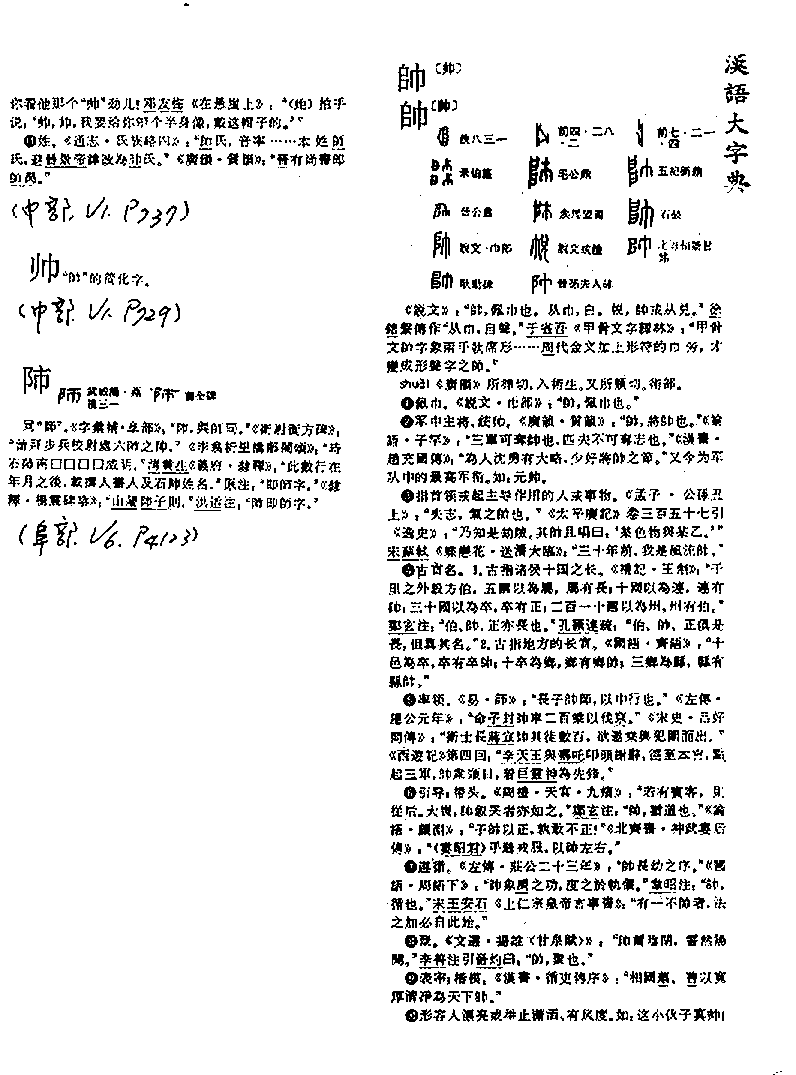 漢語大字典
帥〔帅〕
帥〔帅〕
後八·一三
前四·二八·二
前七·二一·四
毛公鼎
五祀衛鼎
石鼓
説文·巾部
説文或體
《説文》:“帥,佩巾也。从巾,𠂤。帨,帥或从兑。”徐
鍇繫傳作“从巾,𠂤聲。”于省吾《甲骨文字釋林》:“甲骨
文帥字象兩手執席形……周代金文加上形符的巾旁,才
變成形聲字之帥。”
shuài 《廣韻》所律切,入術生。又所類切。術部。
❶佩巾。《説文·巾部》:“帥,佩巾也。”
❷军中主将、统帅。《廣韻·質韻》:“帥,將帥也。”《論
語·子罕》:“三軍可奪帥也,匹夫不可奪志也。”《漢書·
趙充國傳》:“為人沈勇有大略,少好將帥之節。”又今为军
队中的最高军衔。如:元帅。
❸指首领或起主导作用的人或事物。《孟子·公孫丑
上》:“夫志,氣之帥也。”《太平廣記》卷三百五十七引
《逸史》:“乃知是劫賊,其帥且唱曰:‘某色物與某乙。’”
宋蘇軾《蝶戀花·送潘大臨》:“三十年前,我是風流帥。”
❹古官名。1.古指诸侯十国之长。《禮記·王制》:“千
里之外設方伯。五國以為屬,屬有長;十國以為連,連有
帥;三十國以為卒,卒有正;二百一十國以為州,州有伯。”
鄭玄注:“伯、帥、正亦長也。”孔穎達疏:“伯、帥、正俱是
長,但異其名。”2.古指地方的长官。《國語·齊語》:“十
邑為卒,卒有卒帥;十卒為鄉,鄉有鄉帥;三鄉為縣,縣有
縣帥。”
❺率领。《易·師》:“長子帥師,以中行也。”《左傳·
隱公元年》:“命子封帥車二百乘以伐京。”《宋史·吕好
問傳》:“衛士長蔣宣帥其徒數百,欲邀乘輿犯圍而出。”
《西遊記》第四回:“李天王與哪吒叩頭謝辭,徑至本宫,點
起三軍,帥衆頭目,着巨靈神為先鋒。”
❻引导;带头。《周禮·天官·九嬪》:“若有賓客,則
從后。大喪,帥敍哭者亦如之。”鄭玄注:“帥,猶道也。”《論
語·顔淵》:“子帥以正,孰敢不正!”《北齊書·神武婁后
傳》:“(婁昭君)手縫戎服,以帥左右。”
❼遵循。《左傳·莊公二十三年》:“帥長幼之序。”《國
語·周語下》:“帥象禹之功,度之於軌儀。”韋昭注:“帥,
循也。”宋王安石《上仁宗皇帝言事書》:“有一不帥者,法
之加必自此始。”
❽聚。《文選·揚雄〈甘泉賦〉》:“帥爾陰閉,霅然陽
開。”李善注引晉灼曰:“帥,聚也。”
❾表率;楷模。《漢書·循吏傳序》:“相國蕭、曹以寬
厚清净為天下帥。”
❿形容人漂亮或举止潇洒、有风度。如:这小伙子真帅!
你看他那个“帅”劲儿!邓友梅《在悬崖上》:“(她)拍手
说:‘帅,帅,我要给你塑个半身像,戴这帽子的。’”
⓫姓。《通志·氏族略四》:“帥氏,音率……本姓師
氏,避晉景帝諱改為帥氏。”《廣韻·質韻》:“晉有尚書郎
帥昺。”
(巾部. V1. P737)
帅 “帥”的简化字。
(巾部. V1. P729)
同“師”。《字彙補·阜部》:“𨸝,與師同。”《衛尉衡方碑》:
(阜部. V6. P4123)